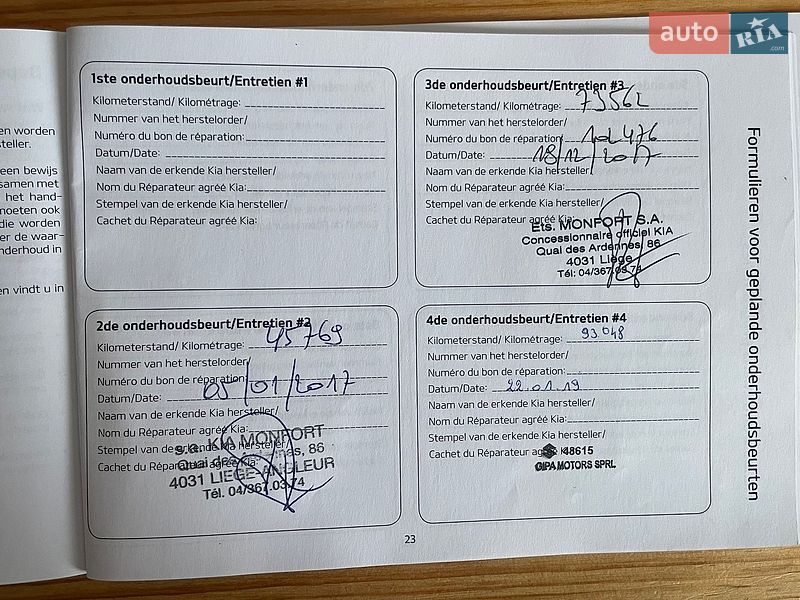 auto RIA .com
en worden
steller.
een bewijs
samen met
het hand-
moeten ook
die worden
er de waar-
nderhoud in
en vindt u in
1ste onderhoudsbeurt/Entretien #1
Kilometerstand/ Kilométrage:
Nummer van het herstelorder/
Numéro du bon de réparation:
Datum/Date:
Naam van de erkende Kia hersteller/
Nom du Réparateur agréé Kia:
Stempel van de erkende Kia hersteller/
Cachet du Réparateur agréé Kia:
2de onderhoudsbeurt/Entretien #2
Kilometerstand/ Kilométrage: 45769
Nummer van het herstelorder/
Numéro du bon de réparation:
Datum/Date: 05/01/2017
Naam van de erkende Kia hersteller/
Nom du Réparateur agréé Kia:
Stempel van de erkende Kia hersteller/
Cachet du Réparateur agréé Kia:
S.A. KIA MONFORT
Quai des Ardennes, 86
4031 LIEGE-ANGLEUR
Tél. 04/367.03.74
3de onderhoudsbeurt/Entretien #3
Kilometerstand/ Kilométrage: 73562
Nummer van het herstelorder/
Numéro du bon de réparation: 102476
Datum/Date: 18/12/2017
Naam van de erkende Kia hersteller/
Nom du Réparateur agréé Kia:
Stempel van de erkende Kia hersteller/
Cachet du Réparateur agréé Kia:
Ets. MONFORT S.A.
Concessionnaire officiel KIA
Quai des Ardennes, 86
4031 Liège
Tél: 04/367.03.74
4de onderhoudsbeurt/Entretien #4
Kilometerstand/ Kilométrage: 93.048
Nummer van het herstelorder/
Numéro du bon de réparation:
Datum/Date: 22.01.19
Naam van de erkende Kia hersteller/
Nom du Réparateur agréé Kia:
Stempel van de erkende Kia hersteller/
Cachet du Réparateur agréé Kia:
48615
GIPA MOTORS SPRL
Formulieren voor geplande onderhoudsbeurten
23